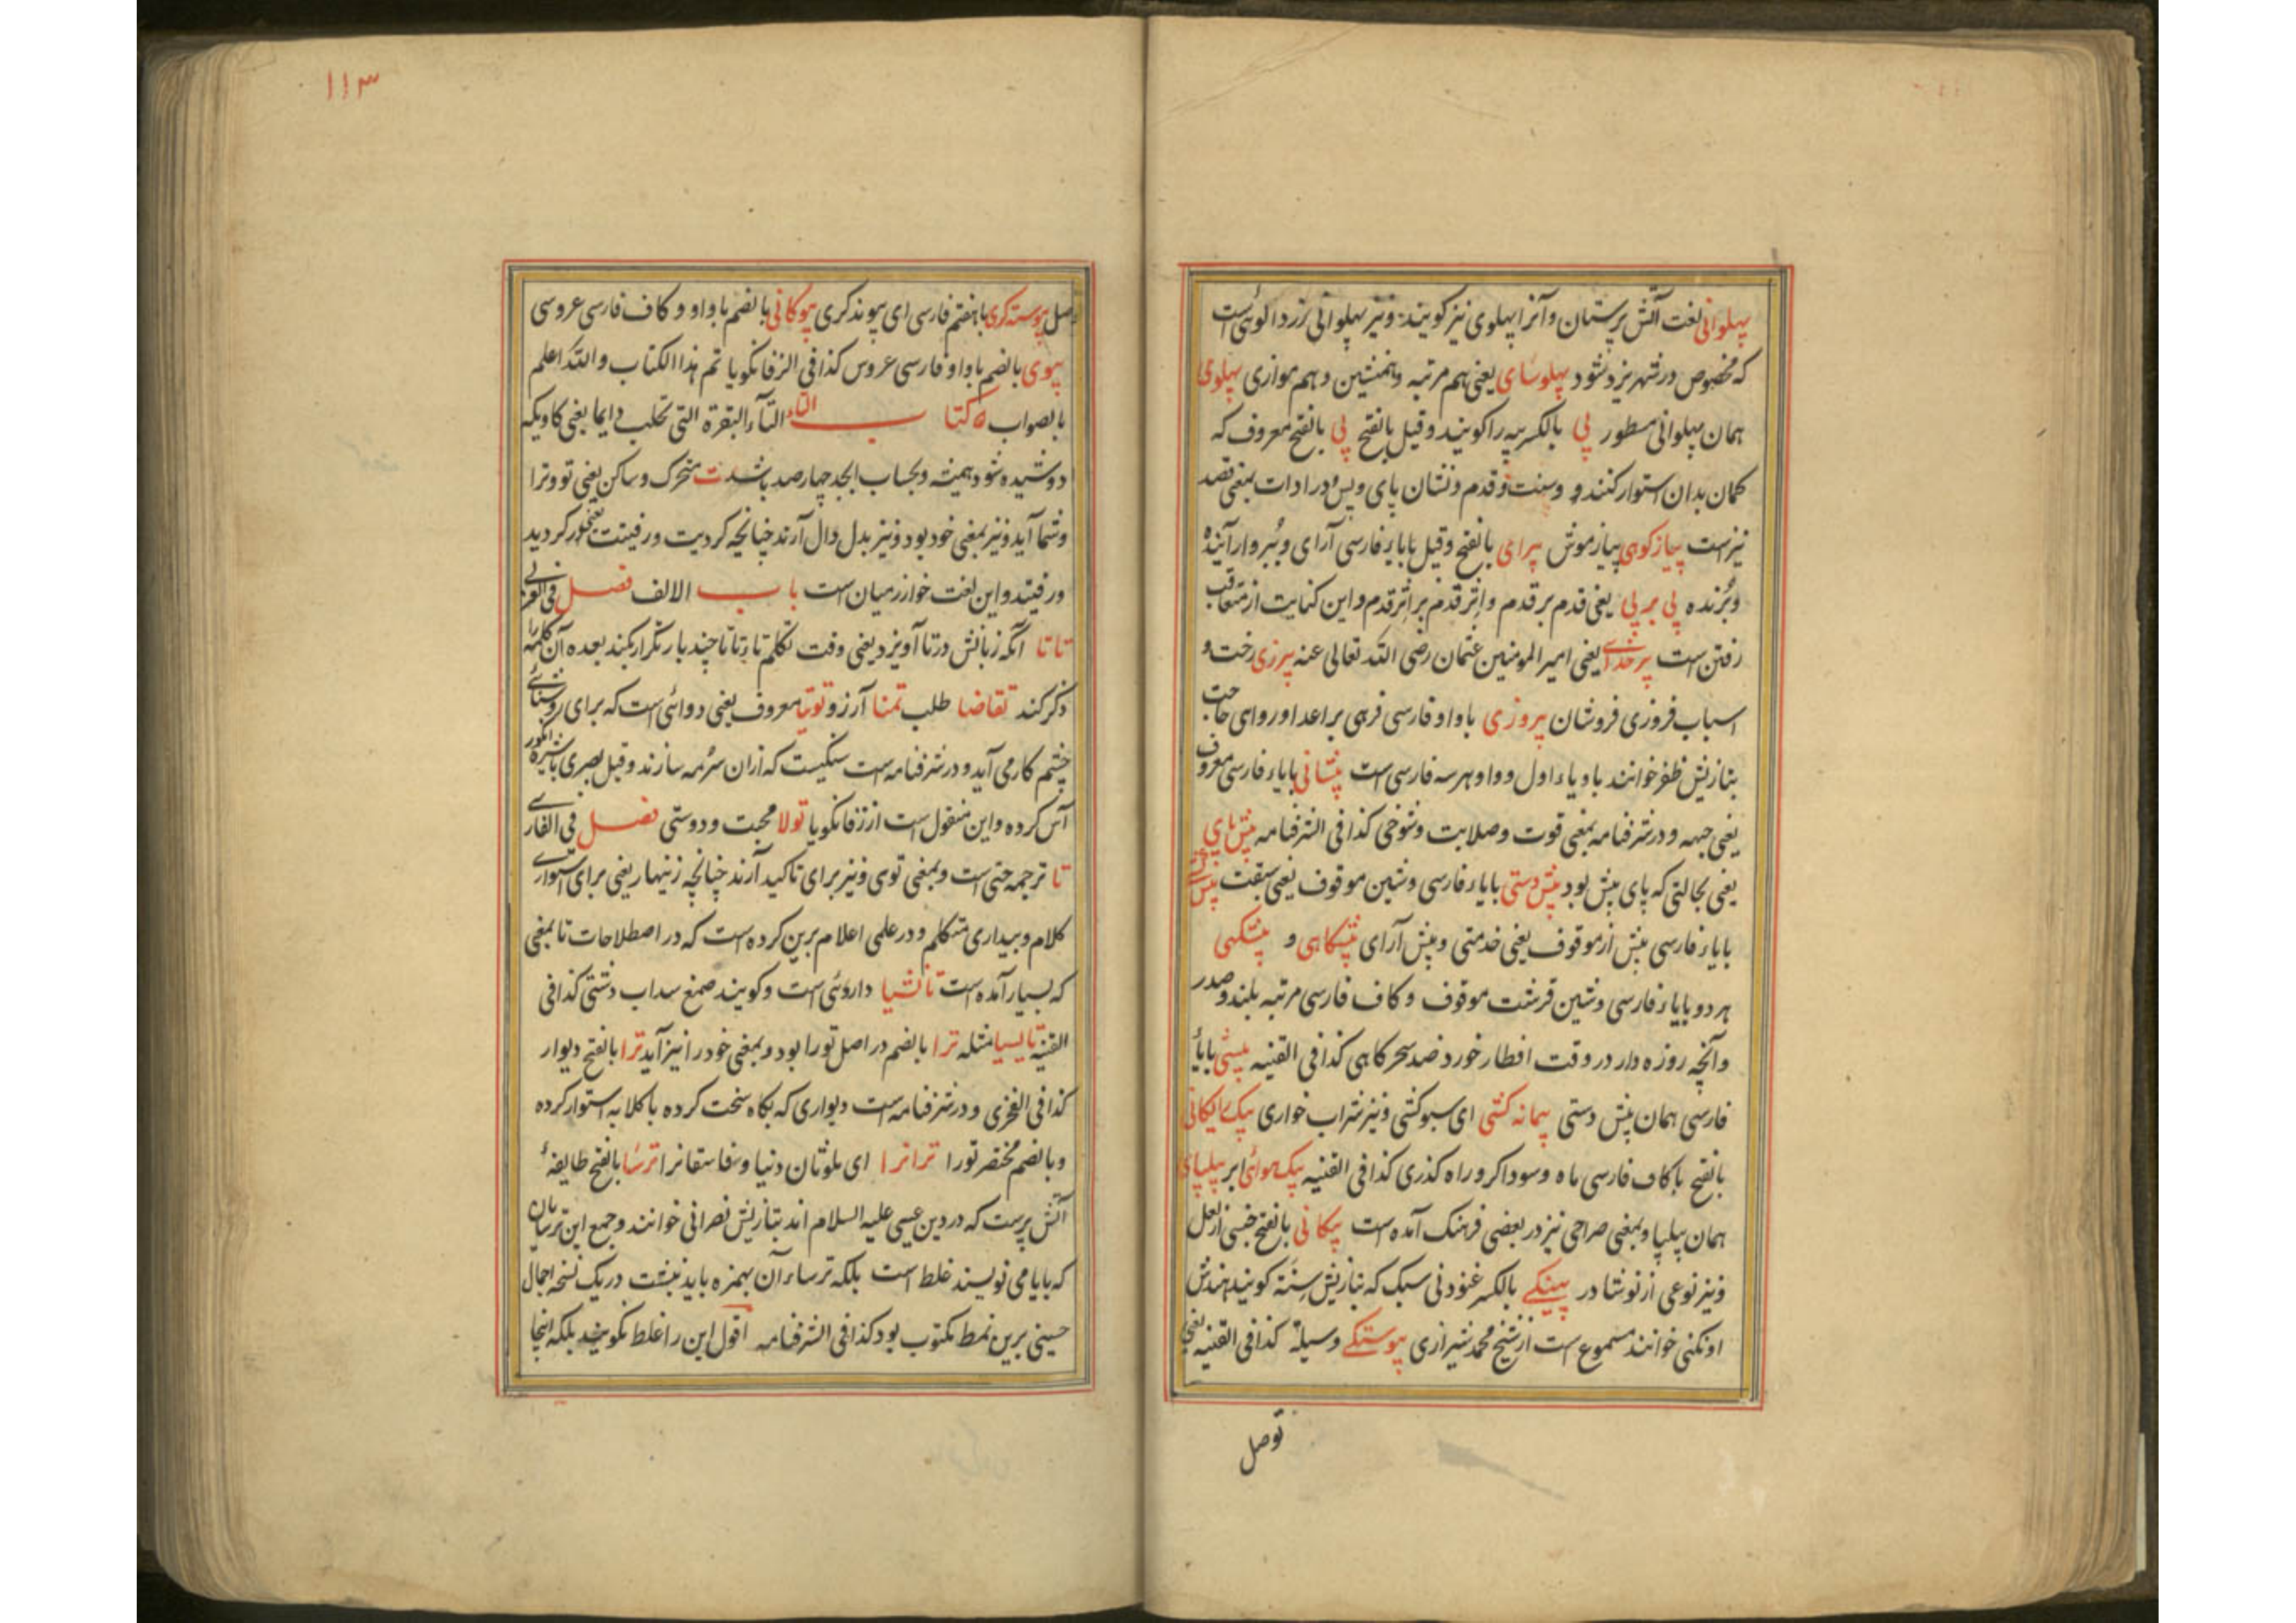 پهلوانی لغت آتش پرستان و آنرا پهلوی نیز گویند و نیز پهلوانی زردالوئی است
که مخصوص در شهر یزد شود پهلوسای یعنی هم مرتبه و همنشین و هم موازی پهلوی
همان پهلوانی مسطور پی بالکسر پیه را گویند و قیل بالفتح پی بالفتح معروف که
کمان بدان استوار کنند و سنت و قدم و نشان پای و پس و در ادات بمعنی قصد
نیز است پیاز کوهی پیاز موش پیرای بالفتح و قیل بایاء فارسی آرای و ببر و آراینده
و برنده پی بر پی یعنی قدم بر قدم و اثر قدم بر اثر قدم و این کنایت از متعاقب
رفتن است یعنی امیر المومنین عثمان رضی الله تعالی عنه رخت و
اسباب فروشان پیروزی باواو فارسی فرهی بر اعدا و روای حاجت
بتازیش ظفر خوانند یاء اول و واو هر سه فارسی است پیشانی بایاء فارسی معروف
یعنی جبهه و در شرفنامه بمعنی قوت و صلابت و شوخی کذا فی الشرفنامه پیش پای
یعنی بحالتی که پای پیش بود پیش دستی بایاء فارسی و شین موقوف یعنی سبقت پیش
بایاء فارسی پیش از موقوف یعنی خدمتی و پیش آرای پیشگاهی و پیشگهی
هر دو بایاء فارسی و شین قرشت موقوف و کاف فارسی مرتبه بلند و صدر
و آنچه روزه دار در وقت افطار خورد ضد سحرگاهی کذا فی القنیه پیشی بایاء
فارسی همان پیش دستی پیمانه کشی ای سبو کشی و نیز شراب خواری پیک رایگانی
بالفتح باکاف فارسی ماه و سوداگر و راه گذری کذا فی القنیه پیک هوائی ابر پیلپای
همان پیلپا و بمعنی صراحی نیز در بعضی فرهنگ آمده است پیکانی بالفتح جنسی از لعل
و نیز نوعی از نوشادر پینکی بالکسر غنودنی سبک که بتازیش سنة گویند هندش
اونگنی خوانند مسموع است از شیخ محمد شیرازی پیوستگی وسیله کذا فی القنیه یعنی
توصل
۱۱۳
وصل پیوسته گری باهفتم فارسی ای پیوند گری پیوگانی بالضم باواو و کاف فارسی عروسی
پیوی بالضم باواو فارسی عروس کذا فی الزفانگویا تم هذا الکتاب والله اعلم
بالصواب کتاب التاء التاء البقرة التی تحلب دایما یعنی گاویکه
دوشیده شود همیشه و بحساب ابجد چهارصد باشد ت متحرک و ساکن یعنی تو و ترا
و شما آید و نیز بمعنی خود بود و نیز بدل دال آرند چنانچه کردیت و رفتیت یعنی کردید
و رفتید و این لغت خوارزمیان است باب الالف فصل فی العربی
تاتا آنکه زبانش در تا آویزد یعنی وقت تکلم تاتاتا چند بار تکرار کند بعده آن کلمه را
ذکر کند تقاضا طلب تمنا آرزو توتیا معروف یعنی دوائی است که برای روشنائی
چشم کار می آید و در شرفنامه است سنگیست که از ان سرمه سازند و قیل بصری باشیره انگور
آس کرده و این منقول است از زفانگویا تولا محبت و دوستی فصل فی الفارسی
تا ترجمه حتی است و بمعنی توی و نیز برای تاکید آرند چنانچه زینهار یعنی برای استواری
کلام و بیداری متکلم و در علمی اعلام برین کرده است که در اصطلاحات تا بمعنی
که بسیار آمده است تافشیا داروئی است و گویند صمغ سداب دشتی کذا فی
القنیه تالیسیا مثله ترا بالضم در اصل تو را بود و بمعنی خود را نیز آید ترا بالفتح دیوار
کذا فی الفخری و در شرفنامه است دیواری که بکاه سخت کرده باکلابه استوار کرده
و بالضم مختصر تو را تراترا ای ملوثان دنیا و فاسقانرا ترسا بالفتح طایفهٔ
آتش پرست که در دین عیسی علیه السلام اند بتازیش نصرانی خوانند و جمع این ترسایان
که بایا می نویسند غلط است بلکه ترساءان بهمزه باید نبشت در یک نسخه اجمال
حسینی برین نمط مکتوب بود کذا فی الشرفنامه اقول این را غلط نگویند بلکه اینجا